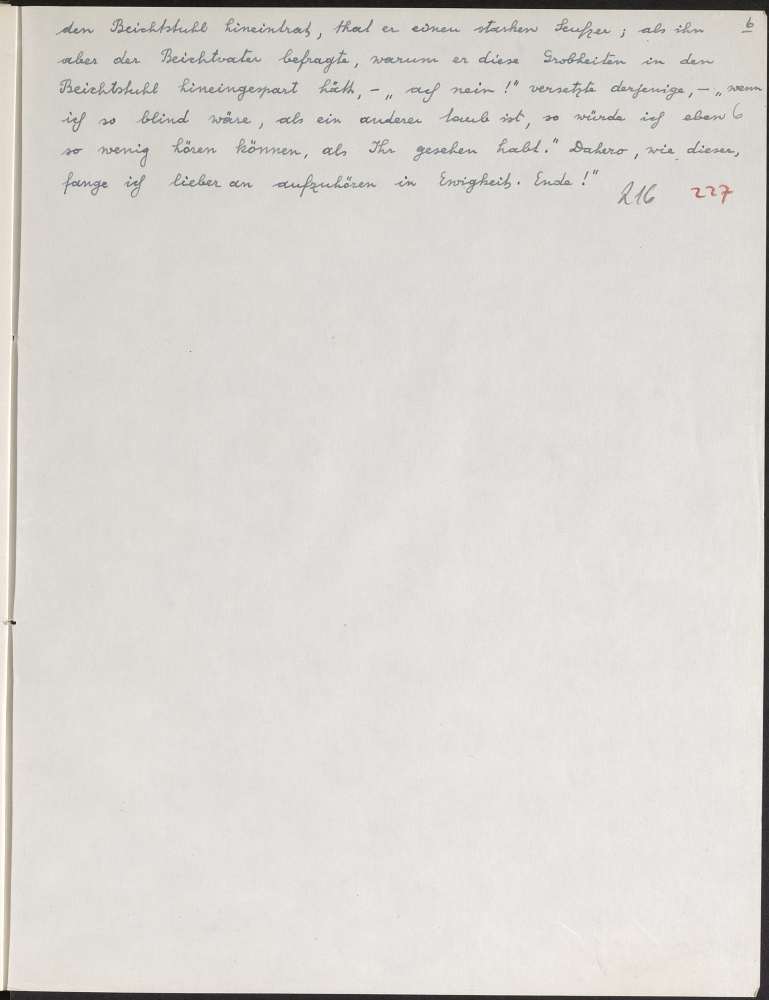 6
den Beichtstuhl hineintrat, that er einen starken Seufzer; als ihn
aber der Beichtvater befragte, warum er diese Grobheiten in den
Beichtstuhl hineingespart hätt, – „ach nein!" versetzte derjenige, – „wenn
ich so blind wäre, als ein anderer taub ist, so würde ich eben 6
so wenig hören können, als Ihr gesehen habt." Dahero, wie dieser,
fange ich lieber an aufzuhören in Ewigkeit. Ende!"
216 227